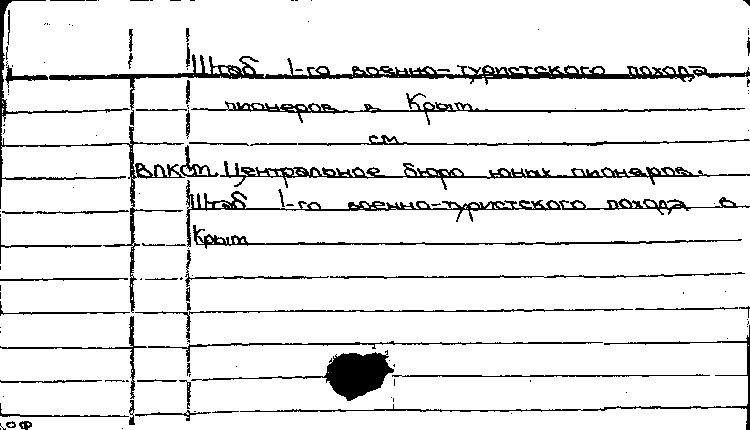 Штаб 1-го военно-туристского похода
пионеров в Крым.
см.
ВЛКСМ. Центральное бюро юных пионеров.
Штаб 1-го военно-туристского похода в
Крым